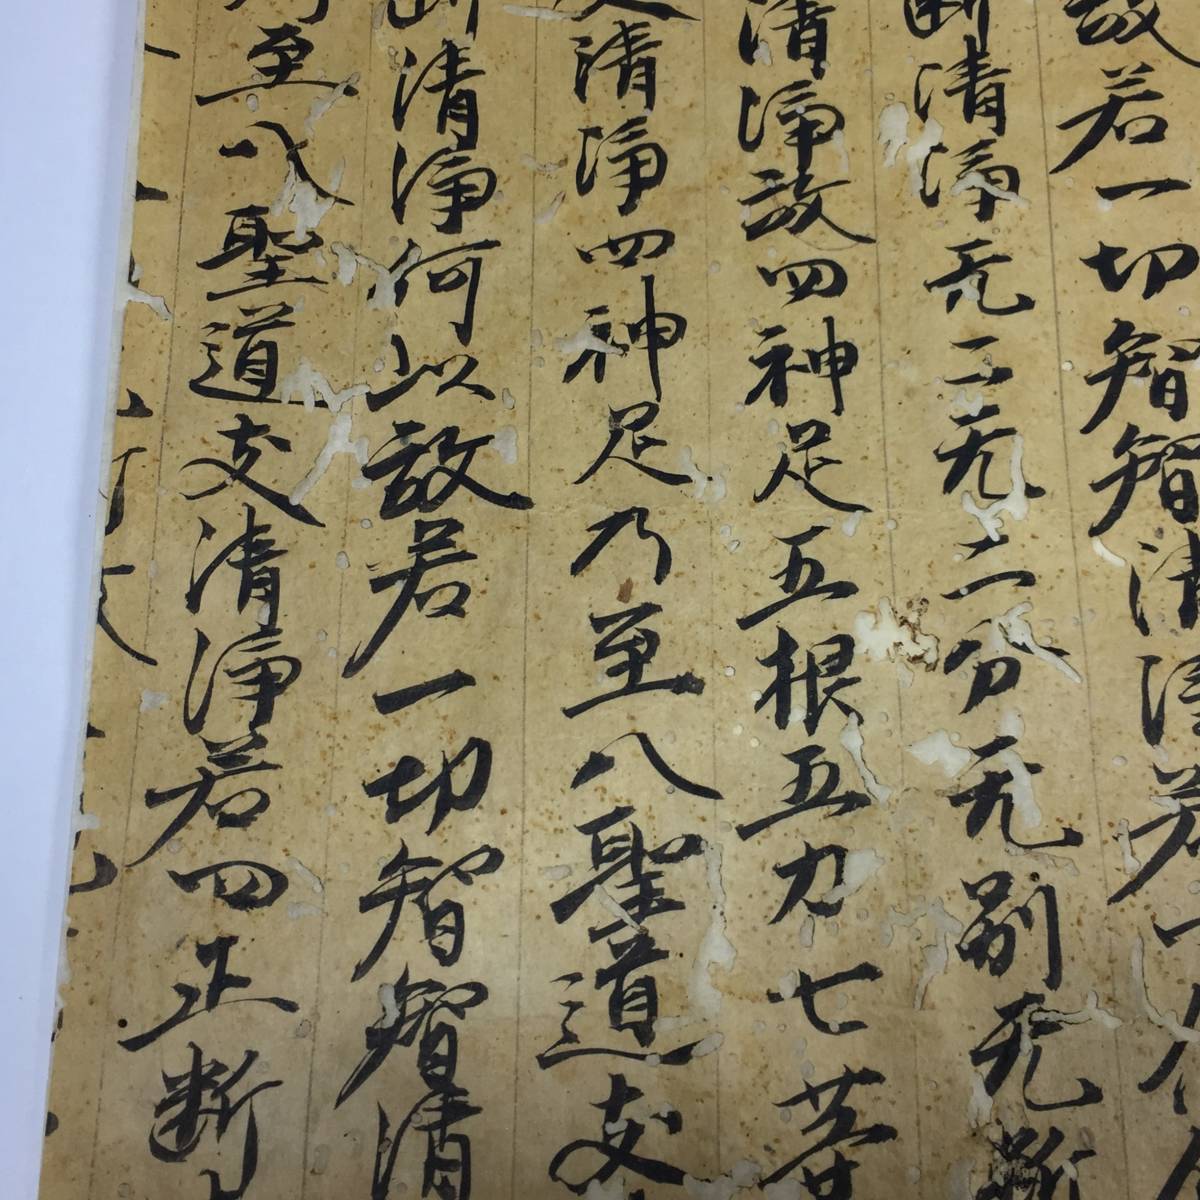 故若一切智智清淨若
断清淨无二无二分无別无断
清淨故四神足五根五力七菩
支清淨四神足乃至八聖道支
断清淨何以故若一切智智清
至八聖道支清淨若四正断